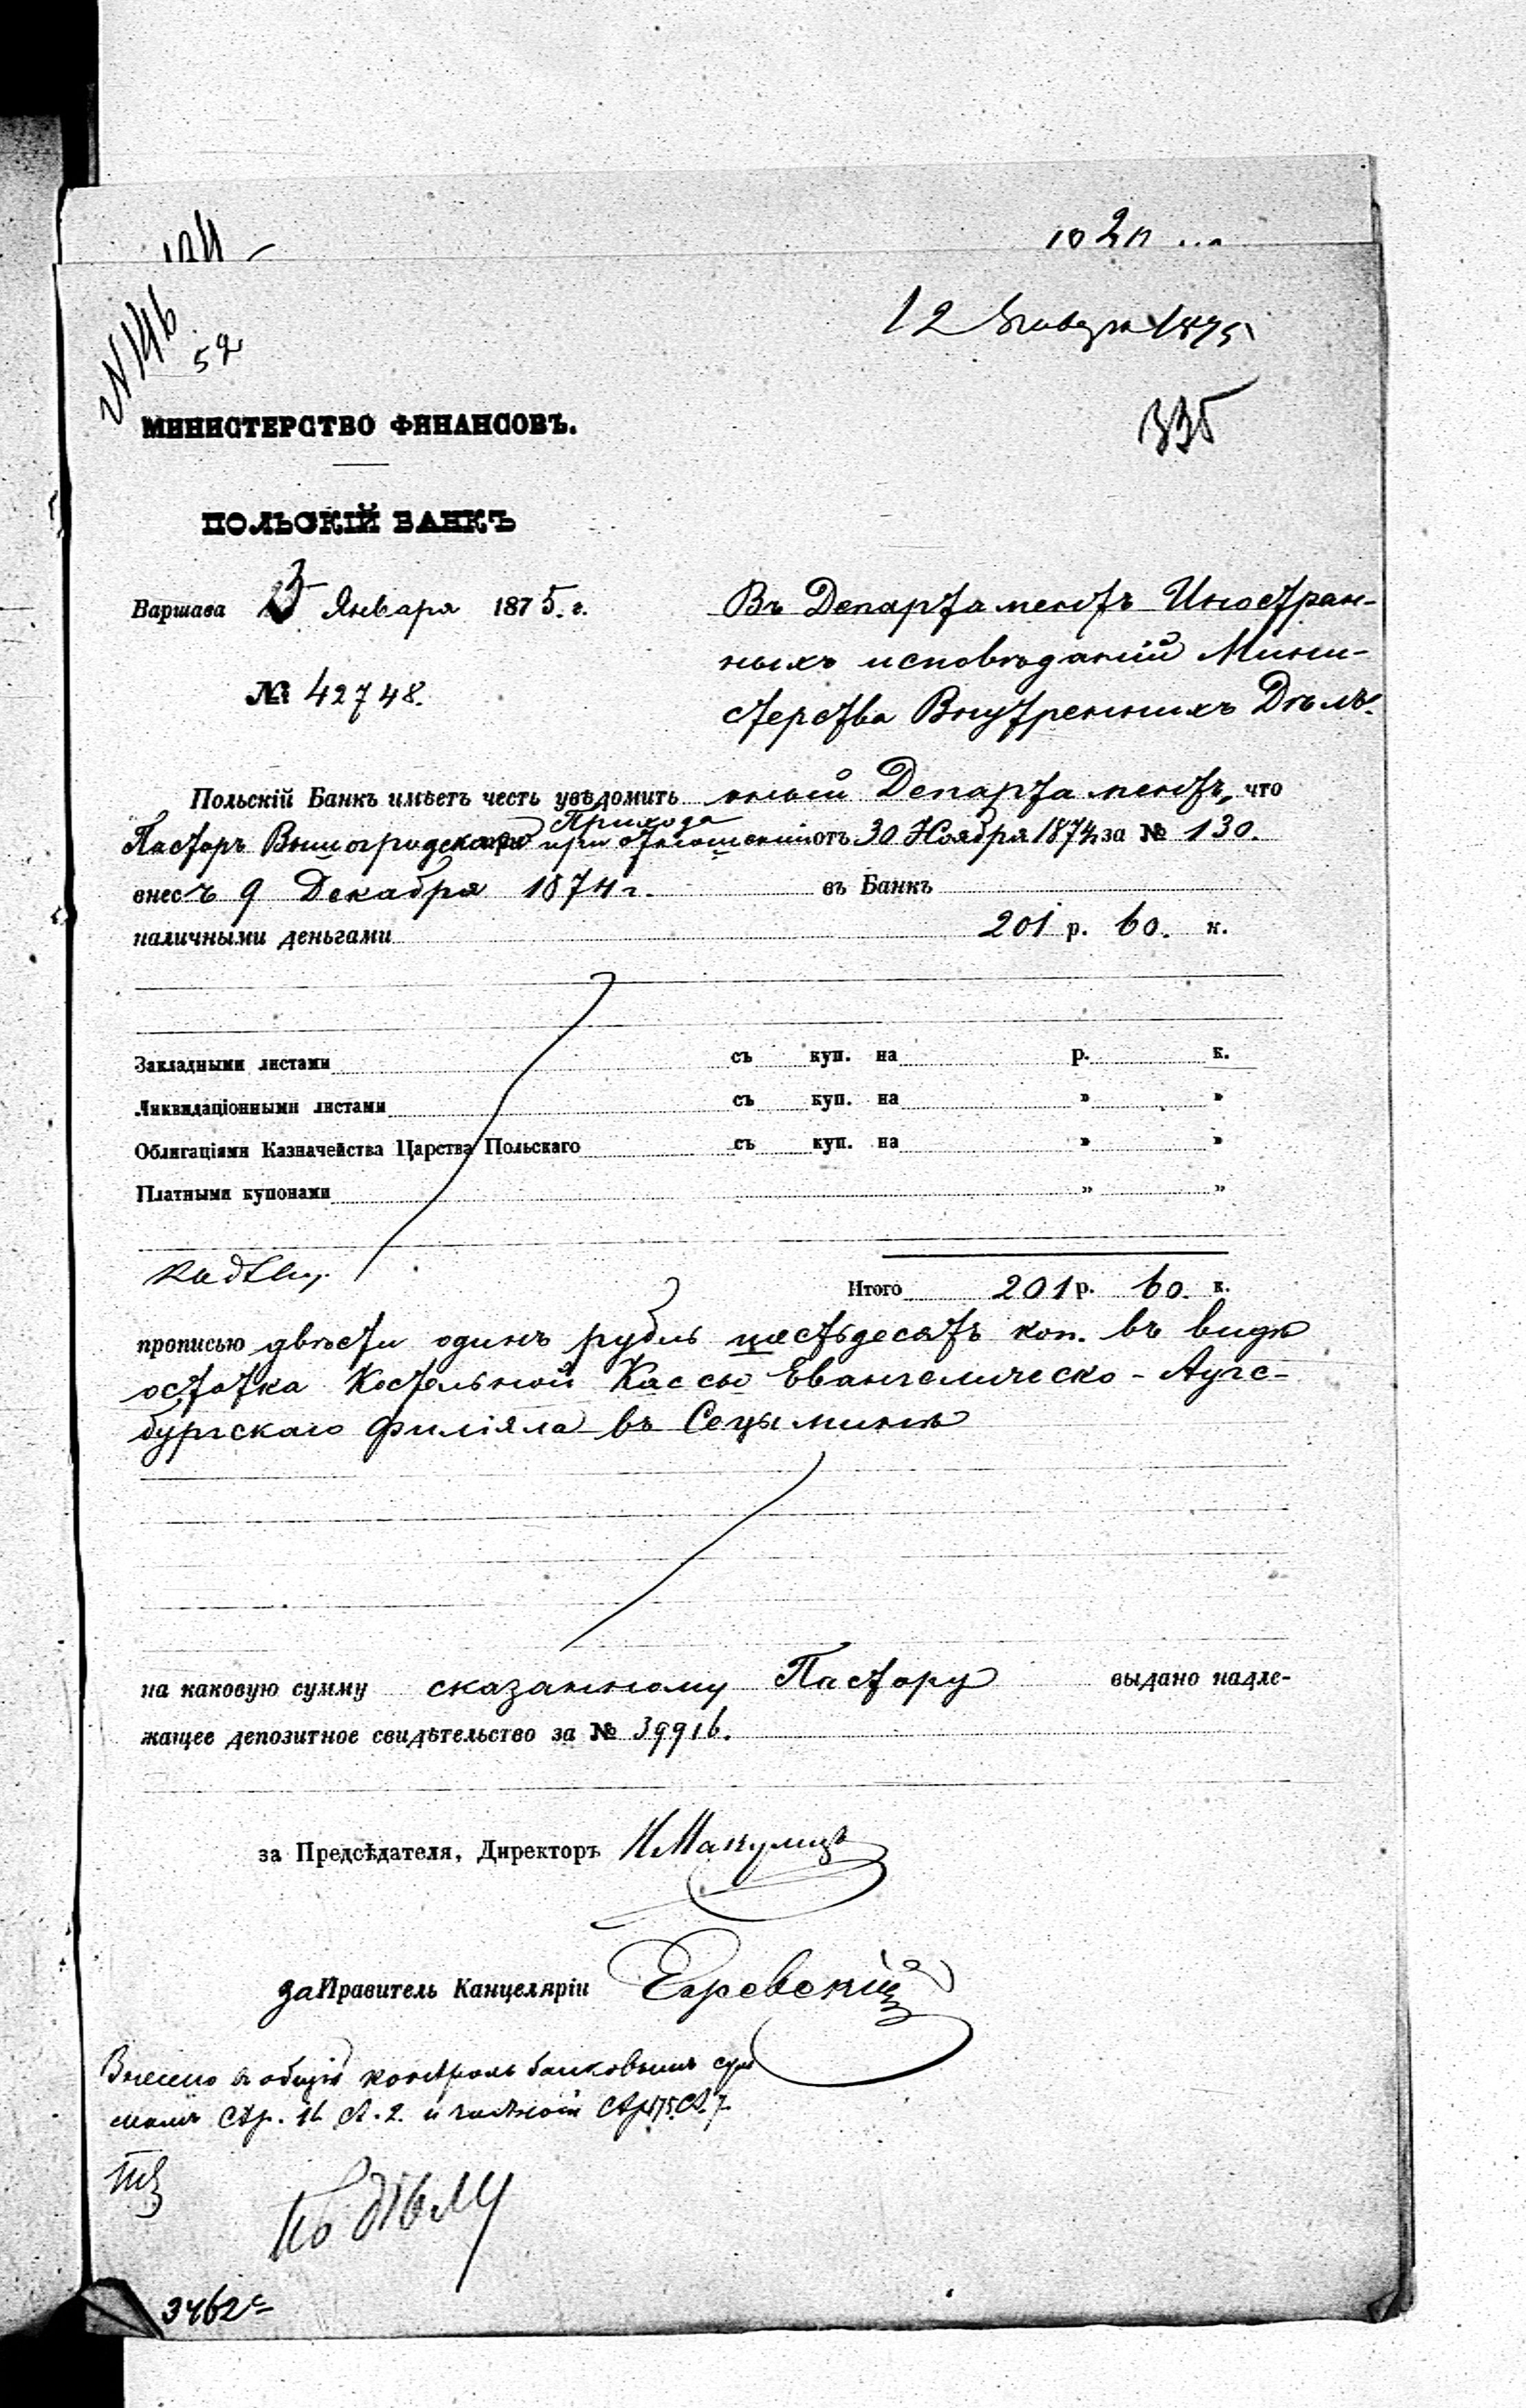 12 Января 1875
№ 146
52
335
МИНИСТЕРСТВО ФИНАНСОВЪ.
ПОЛЬСКІЙ БАНКЪ
Варшава Января 1875. г.
№ 42748.
Въ Департаментъ Иностран-
ныхъ исповѣданій Мини-
стерства Внутреннихъ Дѣлъ.
Польскій Банкъ имѣетъ честь увѣдомить оный Департаментъ, что
Прихода
Пасторъ Вышогродскаго при отношеніи отъ 30 Ноября 1874 за № 130.
внесъ 9 Декабря 1874 г. въ Банкъ
наличными деньгами 201 р. 60. к.
Закладными листами съ куп. на р. к.
Ликвидаціонными листами съ куп. на " "
Облигаціями Казначейства Царства Польскаго съ куп. на " "
Платными купонами " "
Итого 201 р. 60. к.
прописью двѣсти одинъ рубль шестьдесятъ коп. въ видѣ
остатка Костельной Кассы Евангелическо-Аугс-
бургскаго Филіяла въ Сецыминѣ
на каковую сумму сказанному Пастору выдано надле-
жащее депозитное свидѣтельство за № 39916.
за Предсѣдателя, Директоръ
за Правитель Канцеляріи
Внесено въ общій контроль банковымъ сум
мамъ Стр. 16 Ст. 2. и частной Стр 175 Ст. 7.
Къ дѣлу
3462